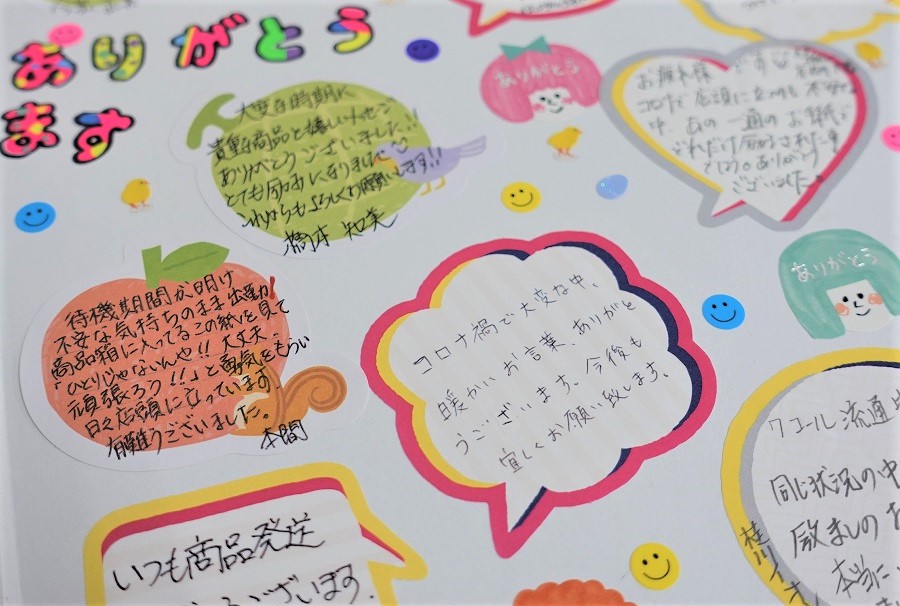 ありがとう
ます
大変な時期に
貴重な商品と嬉しいお言葉
ありがとうございました!!
とても励みになりました
これからもよろしくお願いします!!
橋本 知美
ありがとう
コロナで店頭に立つのも不安な
中、あの一通のお手紙で
どれだけ励まされた事
でしょう。ありがとう
ございました。
ありがとう
待機期間が明け
不安な気持ちのまま出勤!
商品箱に入ってるこの紙を見て
「ひとりじゃないんや!! 大丈夫
頑張ろう!!」と勇気をもらい
日々店頭に立っています。
有難うございました。
本間
コロナ禍で大変な中、
暖かいお言葉、ありがと
うございます。今後も
宜しくお願い致します。
いつも商品発送
ございます。
ワコール流通
同じ状況の中
励ましのお
本当に